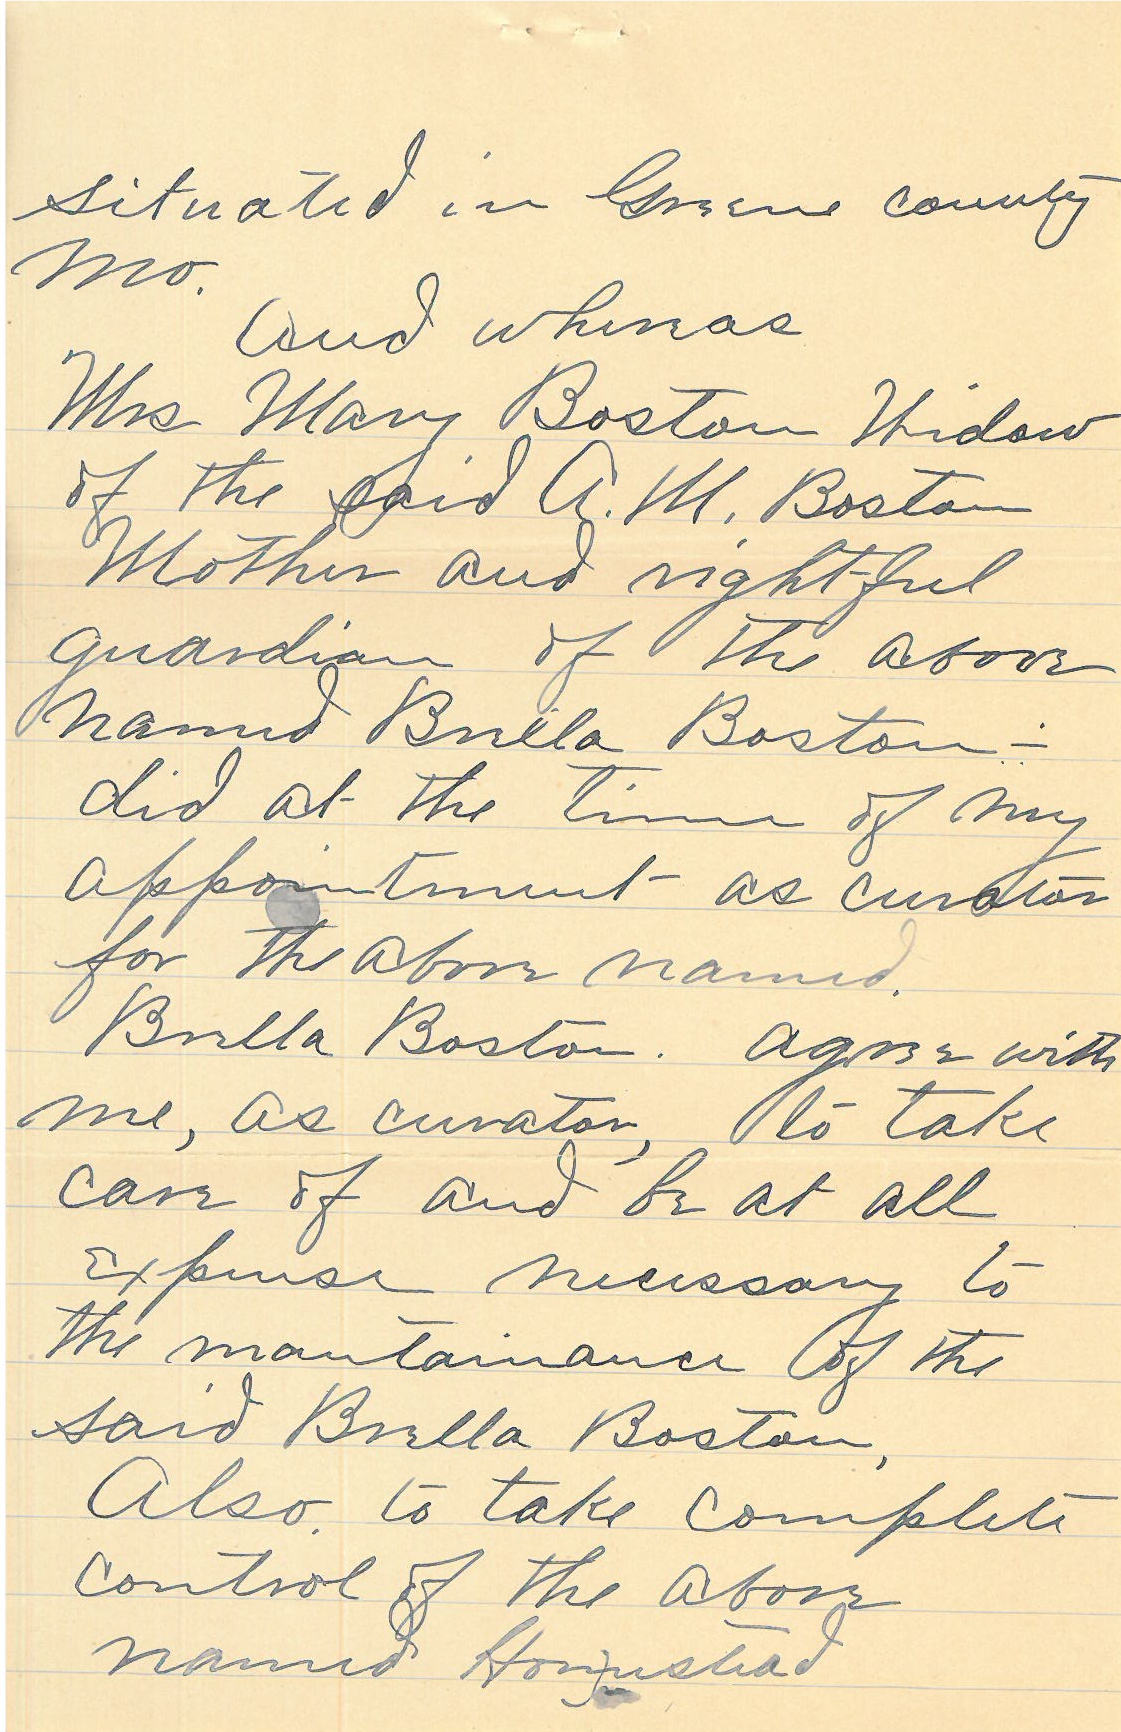 situated in Greene county
Mo.
And whereas
Mrs Mary Boston Widow
of the said A. M. Boston
Mother and rightful
guardian of the above
named Brella Boston -
did at the time of my
appointment as curator
for the above named.
Brella Boston. agree with
me, as curator, to take
care of and be at all
expense necessary to
the mantainance of the
said Brella Boston,
Also, to take complete
control of the above
named Homestead